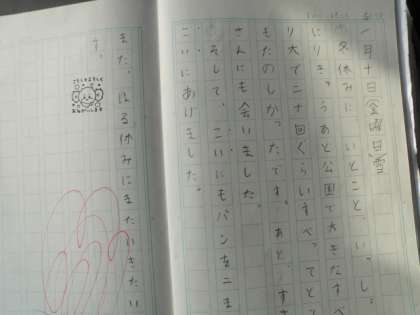 一月十日(金曜日)雪
冬休みに、いとこと、いっし
にりさ、うあと公園で大きなすべ
り犬で三十回くらいすべってとて
もたのしかったです。あと、すさ
さんにも会いました。
そして、こいにもパンを二ま
こいにあげました。
また、はる休みにまたいきたい
す。